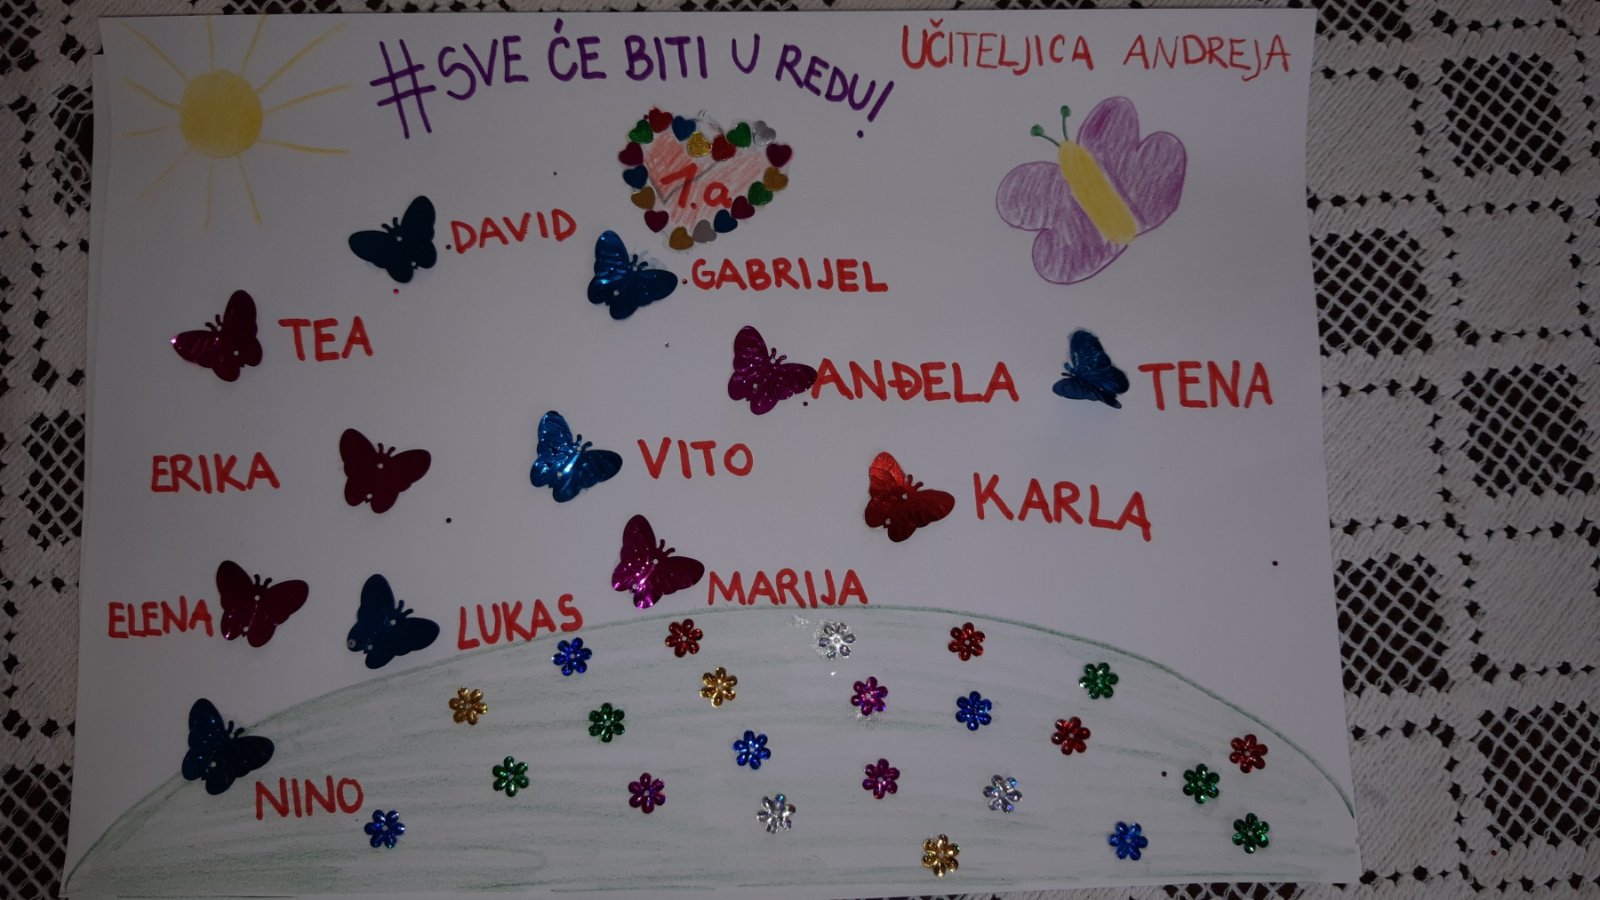 #SVE ĆE BITI U REDU!
UČITELJICA ANDREJA
1.a
DAVID
GABRIJEL
TEA
ANĐELA
TENA
ERIKA
VITO
KARLA
ELENA
LUKAS
MARIJA
NINO